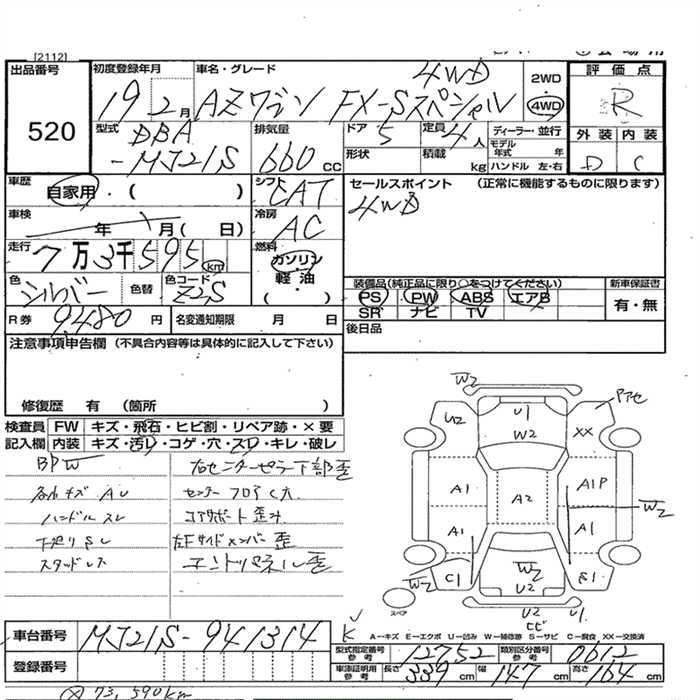 [2112]
出品番号
520
初度登録年月
19 2月
車名・グレード
AZワゴン FX-Sスペシャル 4WD
2WD
4WD
評価点
R
外装 内装
D C
型式
DBA
-MJ21S
排気量
660 cc
ドア 5
形状
定員 4人
積載 kg
ディーラー・並行
モデル年式 年
ハンドル 左・右
車歴
自家用・( )
シフト
CAT
車検
年 月( 日)
冷房
AC
走行
7万3千595 km
燃料
ガソリン
軽油
( ・ )
色
シルバー
色替
色コード
Z2S
R券 9480 円
名変通知期限 月 日
セールスポイント (正常に機能するものに限ります)
4WD
装備品(純正品に限り○をつけてください)
PS PW ABS エアB
SR ナビ TV
新車保証書
有・無
後日品
注意事項申告欄 (不具合内容等は具体的に記入して下さい)
修復歴 有 (箇所 )
検査員 FW キズ・飛石・ヒビ割・リペア跡・×要
記入欄 内装 キズ・汚レ・コゲ・穴・スレ・キレ・破レ
BPW
各部キズ AU
ハンドルスレ
下廻りSし
スタッドレス
右センターピラー下部歪
センターフロアC大
コアサポート歪み
左Fサイドメンバー歪
エンドパネル歪
W2
U2
U1
W2
XX
Pアセ
A1
A2
A1P
W2
A1
A1
W2
C1
W2
S1
U2
U1
ヒビ
スペア
A-キズ E-エクボ U-凹み W-補修跡 S-サビ C-腐食 XX-交換済
車台番号 MJ21S-941314
登録番号
型式指定番号 参考 12752
類別区分番号 参考 0612
車庫証明用 参考 長さ 339 cm 幅 147 cm 高さ 164 cm
73,590km